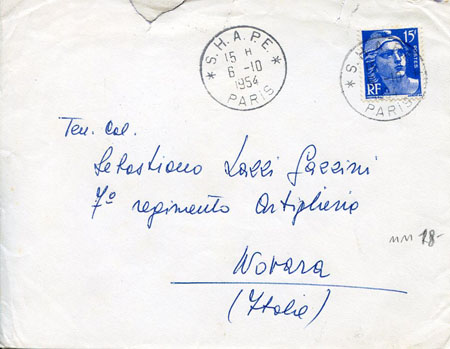 * S.H.A.P.E *
15 H
6 -10
1954
PARIS
15F
POSTES
RF
* S.H.
PARIS
Ten. Col.
Sebastiano Lazzi Gazzini
7º regimento Artiglieria
Novara
(Italia)
18-